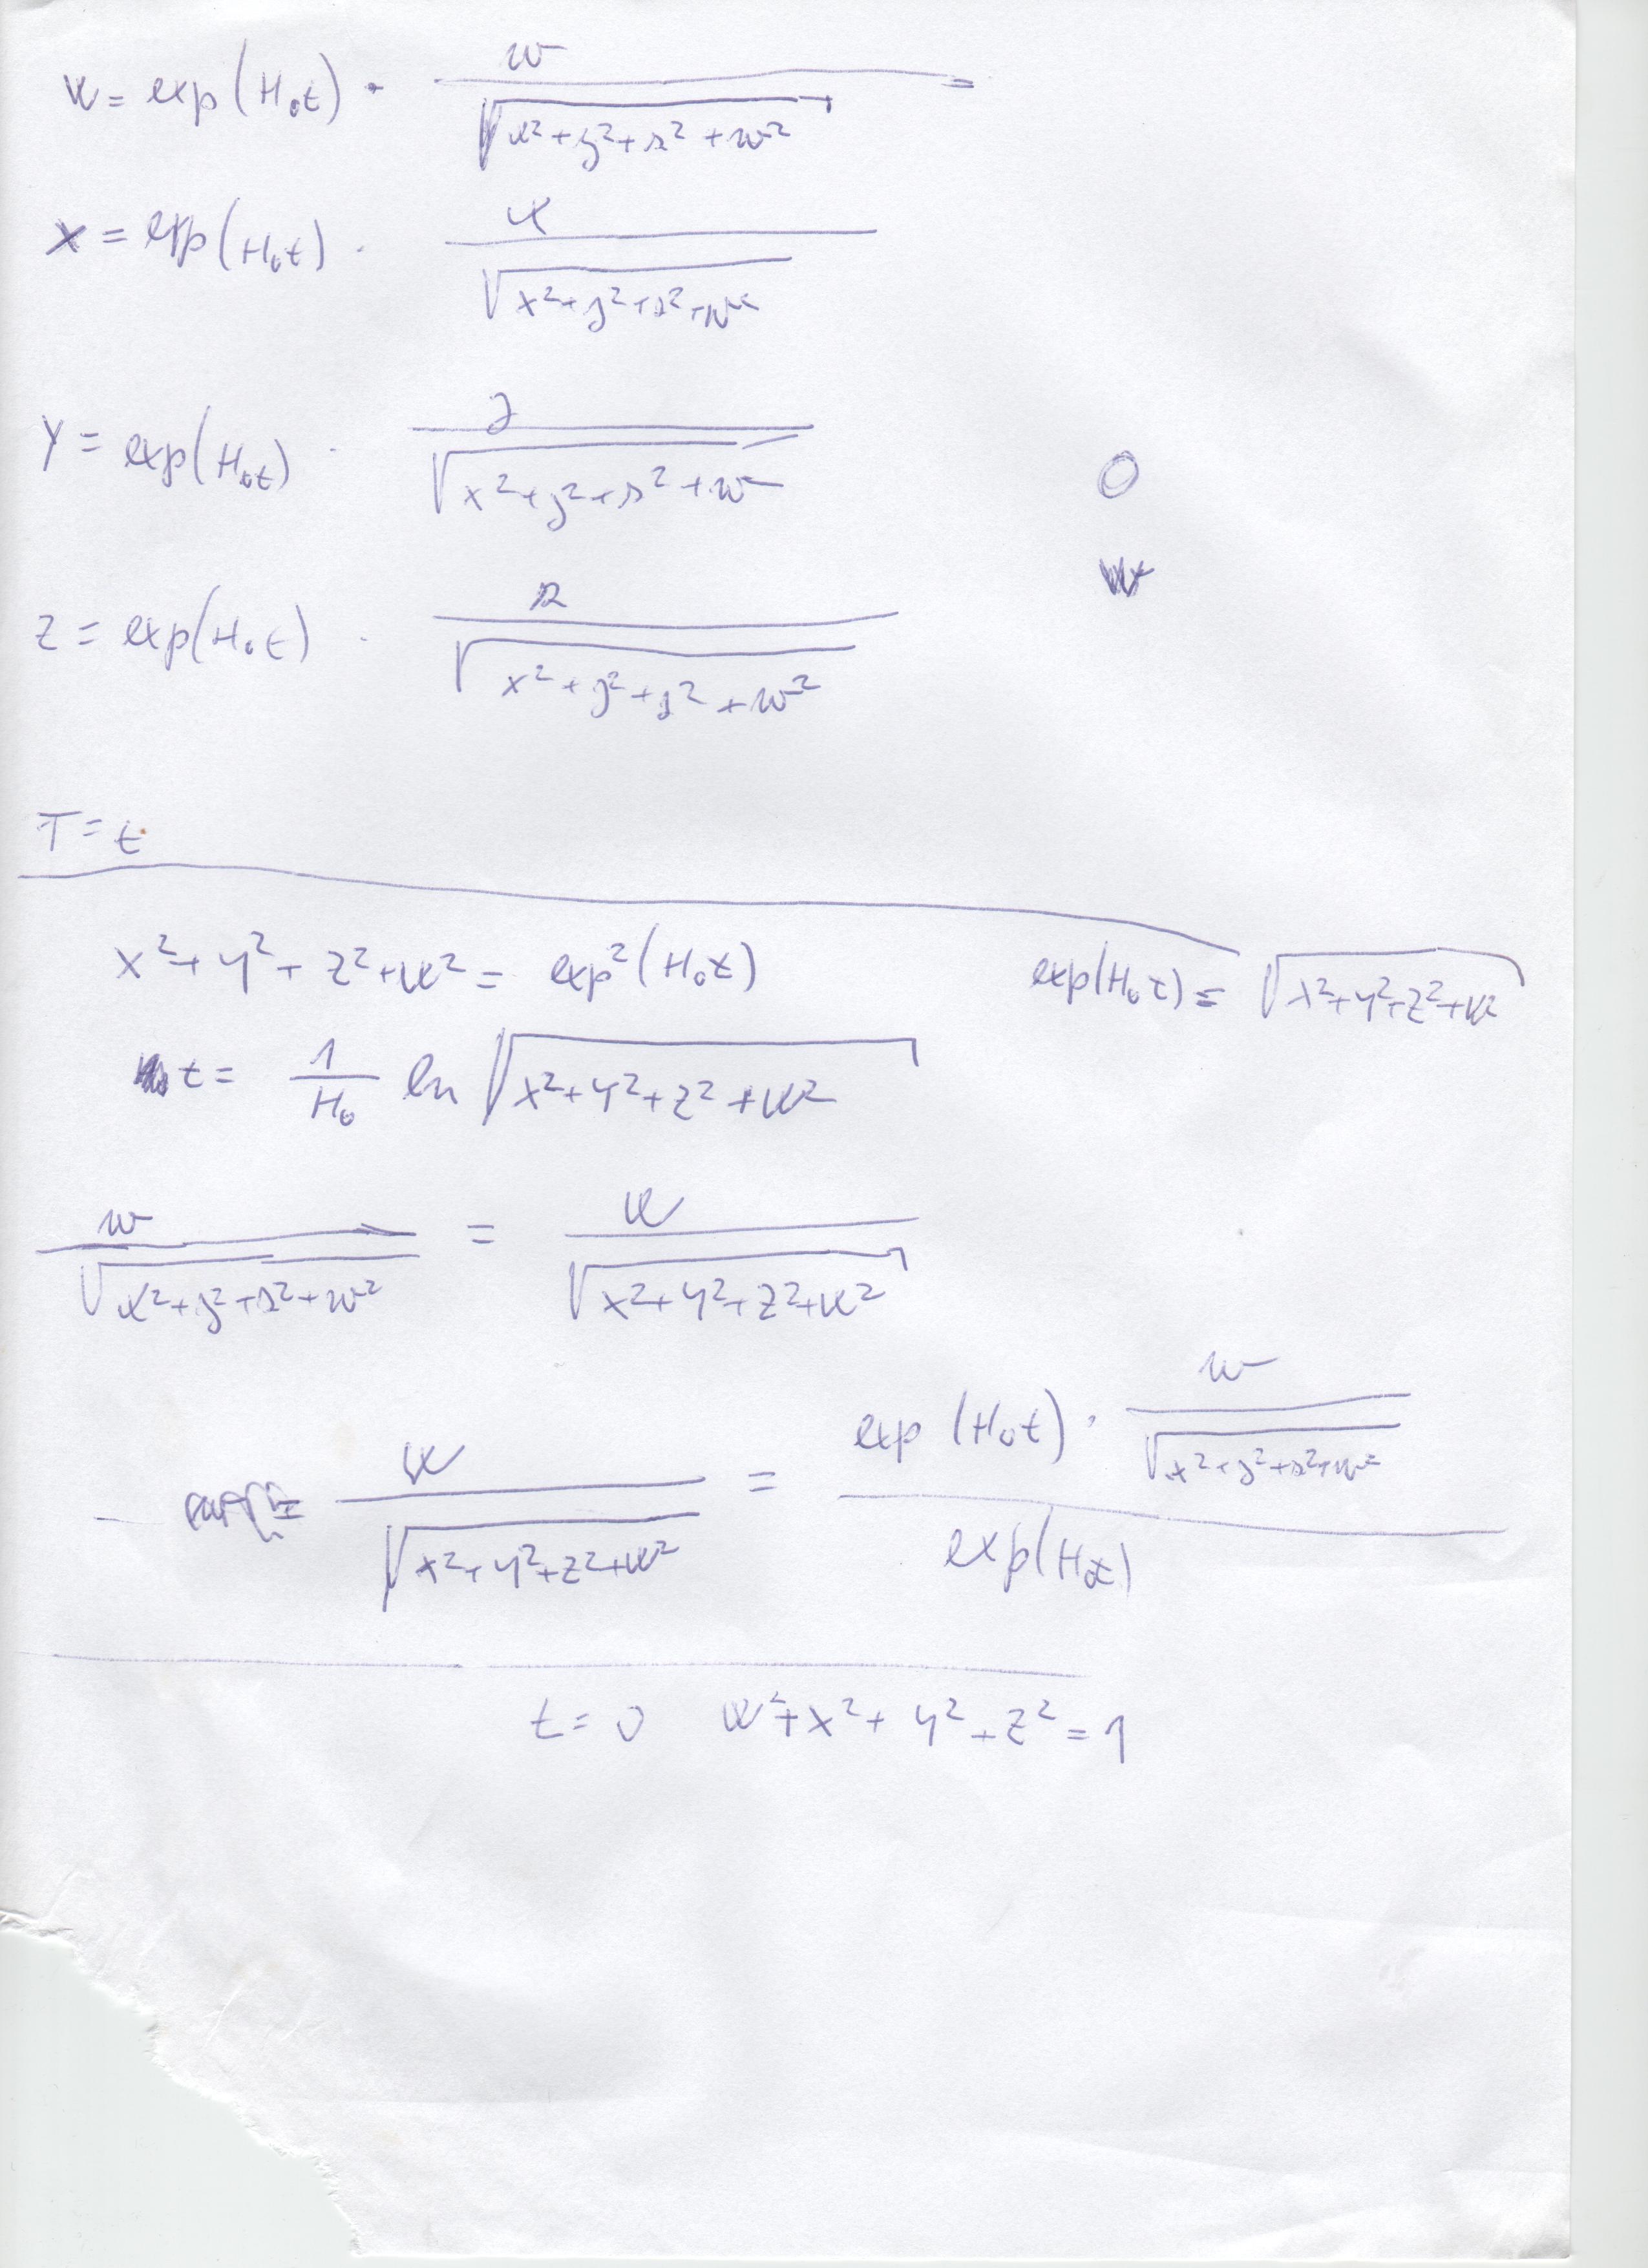 W = exp(H₀t) · w / √(x²+y²+z²+w²) =
X = exp(H₀t) · x / √(x²+y²+z²+w²)
Y = exp(H₀t) · y / √(x²+y²+z²+w²)
O
W
Z = exp(H₀t) · z / √(x²+y²+z²+w²)
T = t
X²+Y²+Z²+W² = exp²(H₀t) exp(H₀t) = √(X²+Y²+Z²+W²)
t = 1/H₀ ln √(X²+Y²+Z²+W²)
w / √(x²+y²+z²+w²) = W / √(X²+Y²+Z²+W²)
W / √(X²+Y²+Z²+W²) = exp(H₀t) · w / √(x²+y²+z²+w²) / exp(H₀t)
t = 0 W²+X²+Y²+Z² = 1